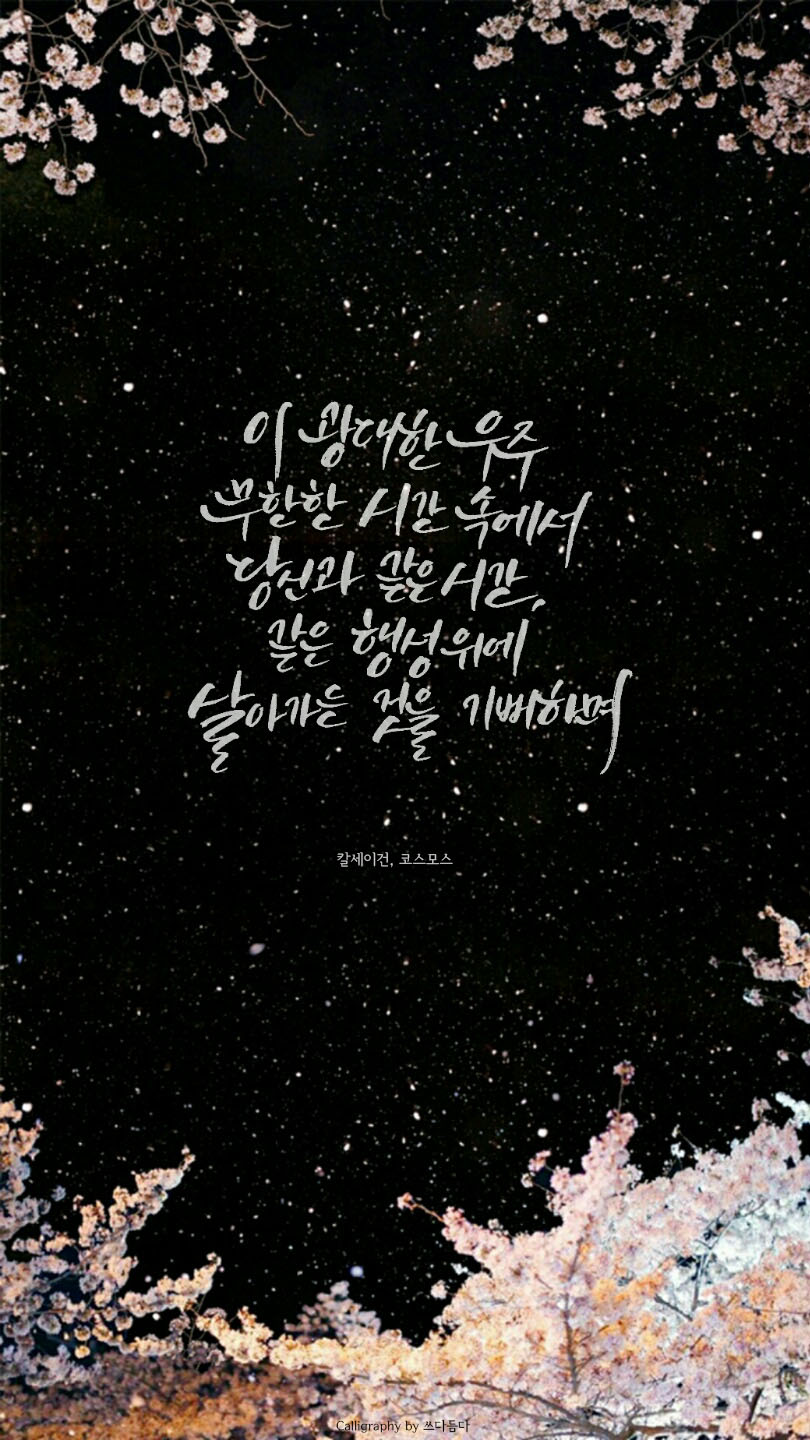 이 광대한 우주
무한한 시간 속에서
당신과 같은 시간,
같은 행성 위에
살아가는 것을 기뻐하며
칼세이건, 코스모스
Calligraphy by 쓰다듬다